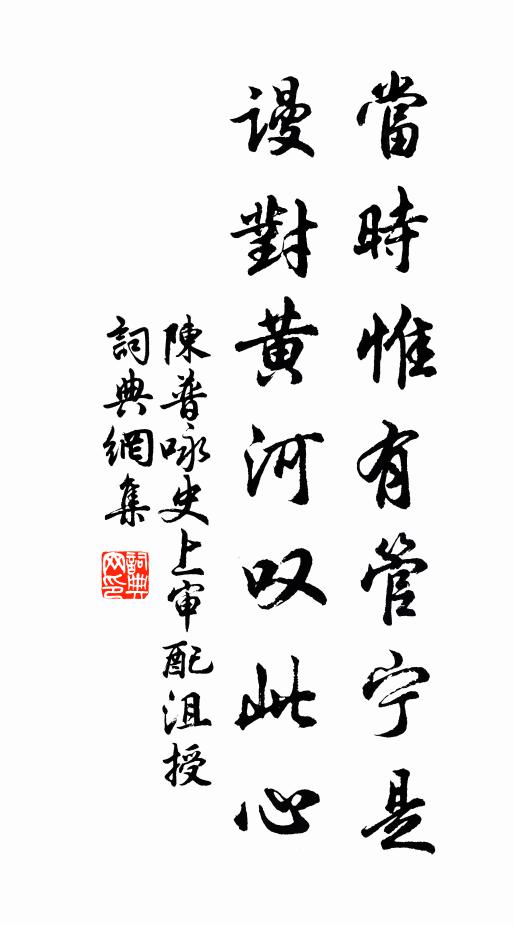 當時惟有管宁是
謾對黃河叹此心
陳普咏史上审配沮授
詞典網集
詞典网印